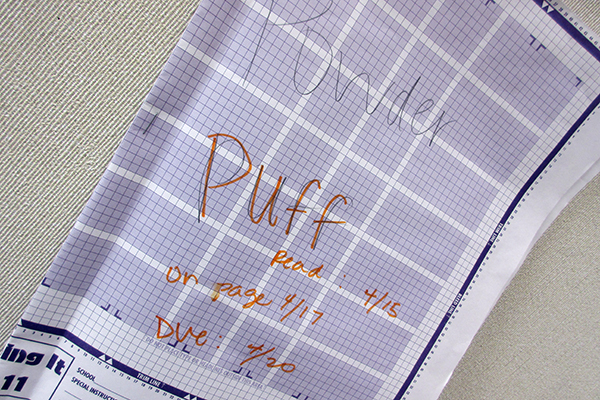 Powder
Puff
Read: 4/15
on page 4/17
Due: 4/20
TRIM LINE
ing It
11
SCHOOL
SPECIAL INSTRUCTI